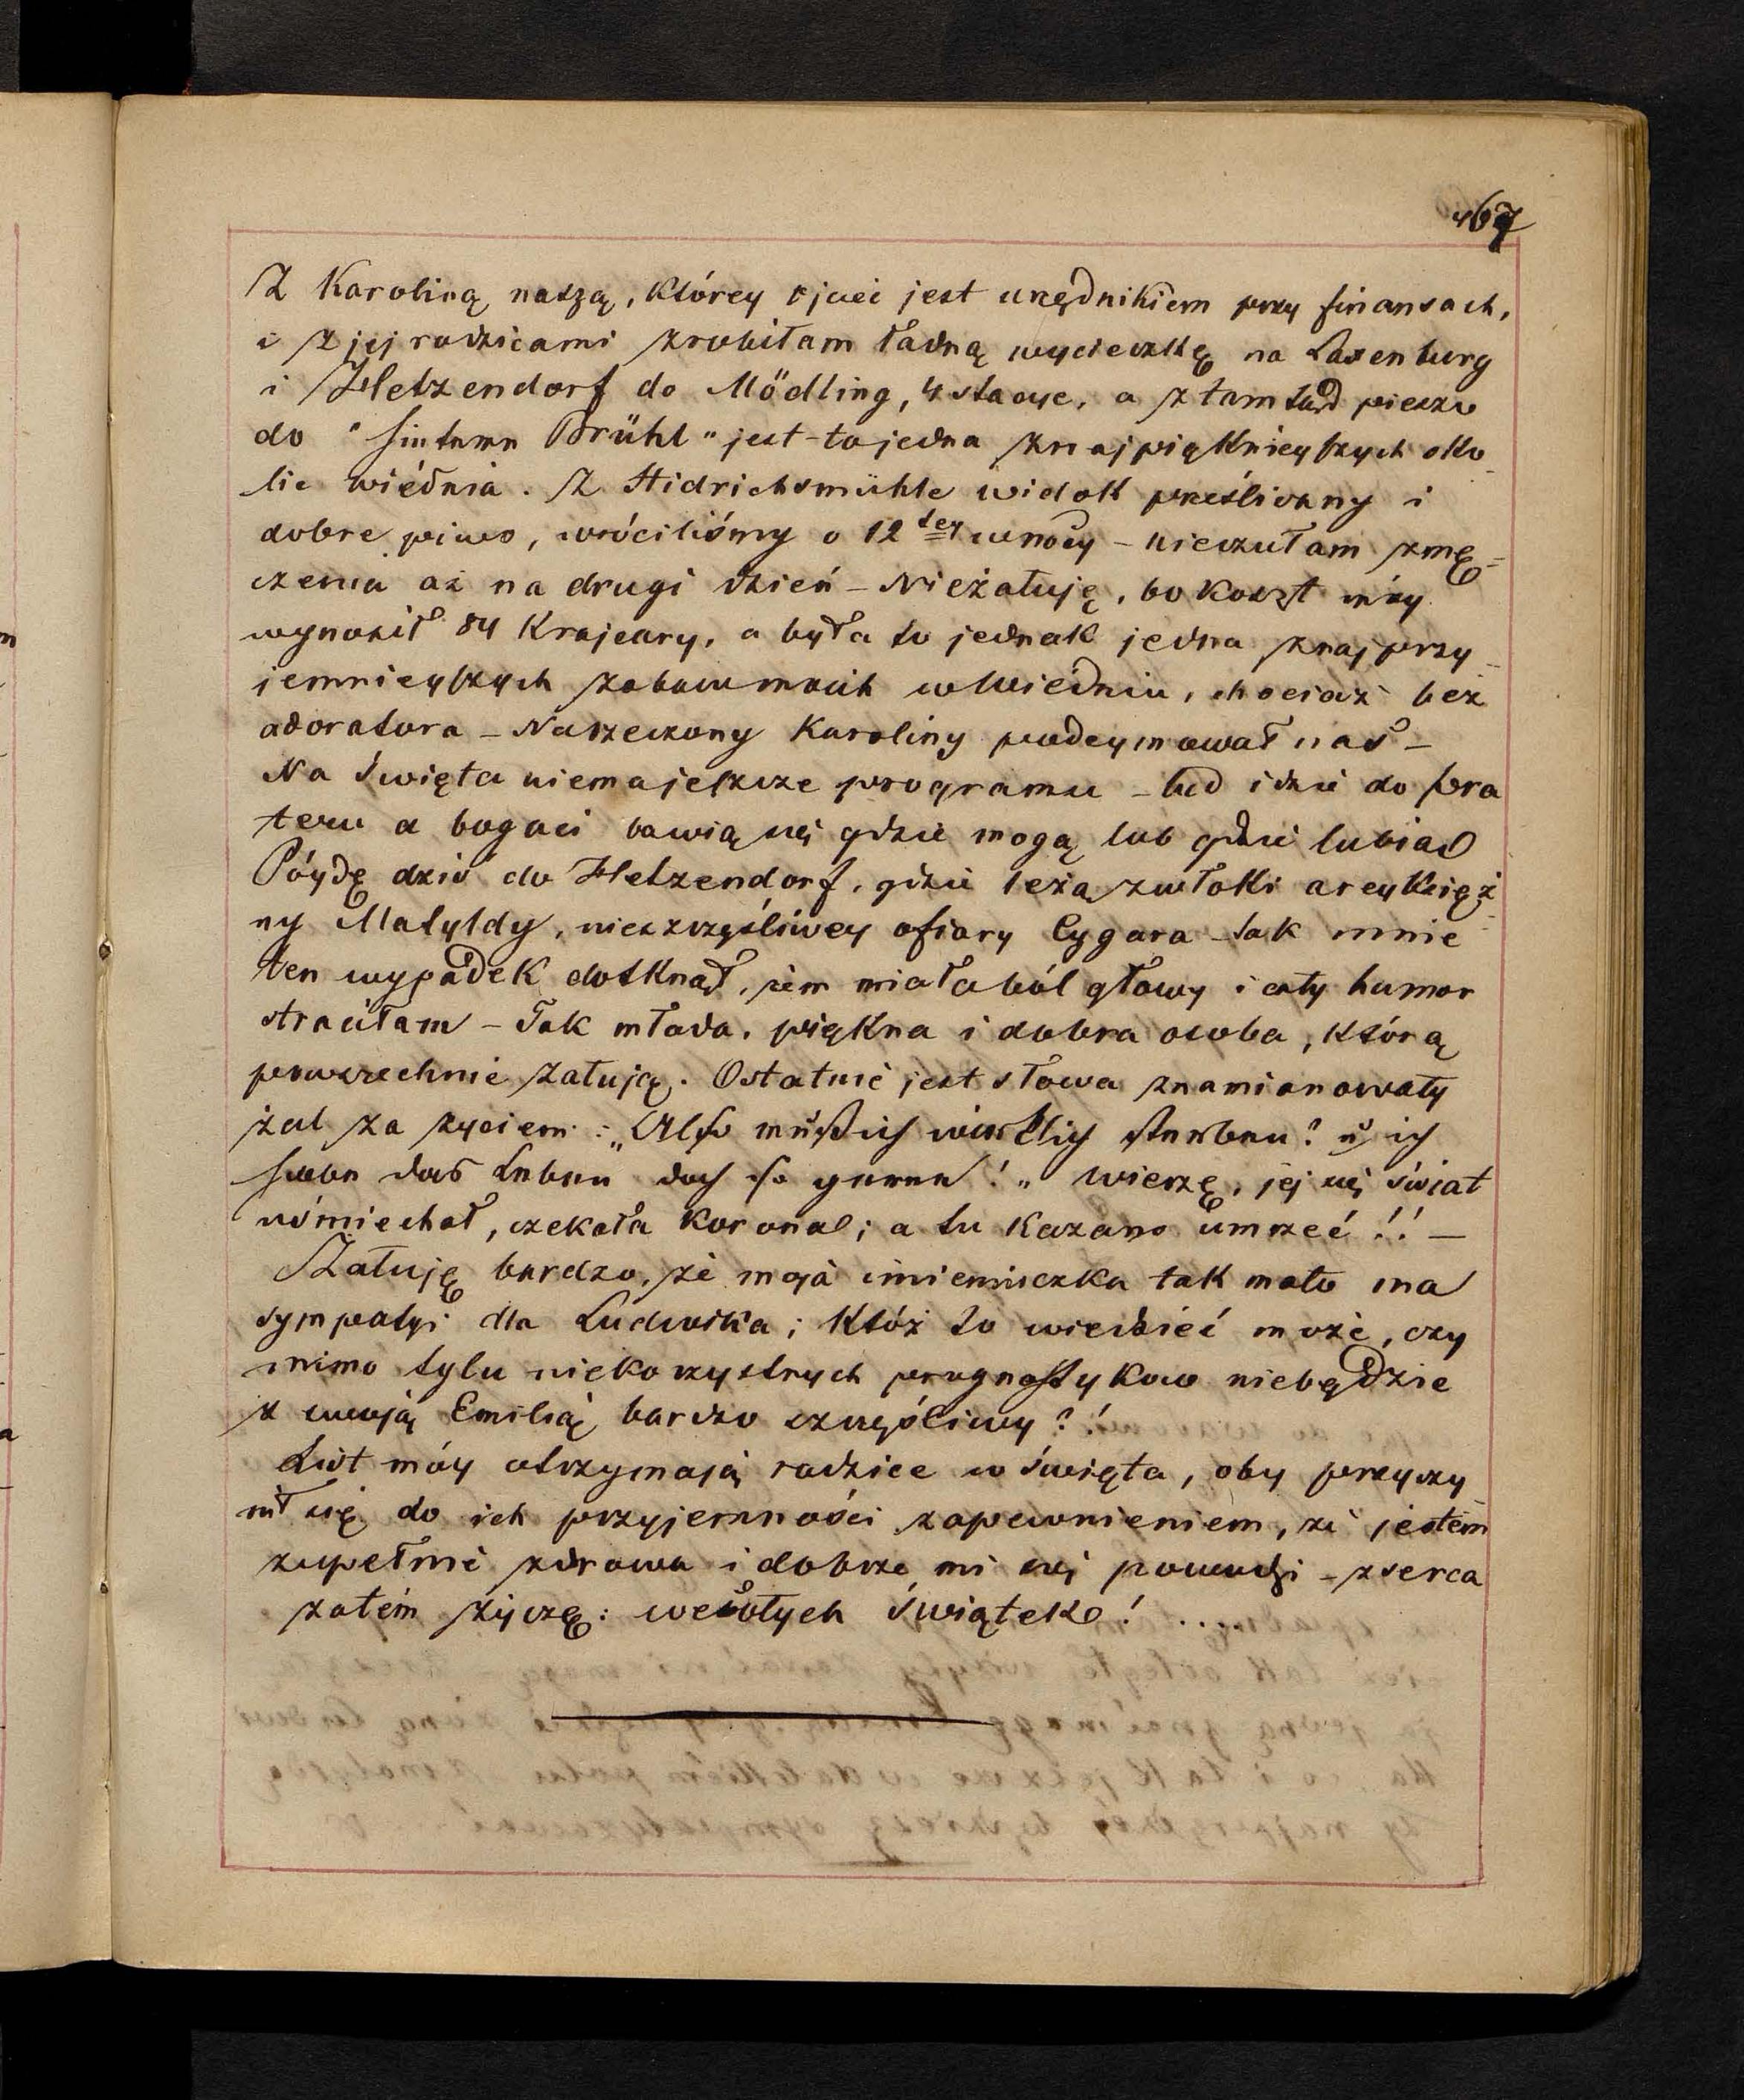 467
Z Karoliną naszą, którey ojciec jest urzędnikiem przy finansach,
i z jej rodzicami zrobiłam ładną wycieczkę na Laxenburg
i Hetzendorf do Mödling, 4 stacye, a ztamtąd pieszo
do "hintern Brühl" jest-to jedna znajpięknieyszych oko_
lic wiédnia. Z Hidrichsmühle widok prześliczny i
dobre piwo, wróciliśmy o 12 tey wnocy – nieczułam zmę=
czenia aż na drugi dzień – Nieżałuję, bo koszt móy
wynosił 84 Krajcary, a była to jednak jedna znajprzy_
jemnieyszych zabaw moich w Wiedniu, chociaż bez
adoratora – Narzeczony Karoliny podeymował nas –
Na Święta niema jeszcze programu – lud idzie do pra
teru a bogaci bawią się gdzie mogą lub gdzie lubią
Póydę dziś do Hetzendorf, gdzie leżą zwłoki arcyksięż_
ny Matyldy, nieszczęśliwey ofiary Cygara – tak mnie
ten wypadek dotknął, żem miała ból głowy i cały humor
straciłam – Tak młoda, piękna i dobra osoba, którą
powszechnie żałują. Ostatnie jest słowa znamionowały
żal za życiem: „Also muß ich wirklich sterben? u ich
habe das Leben doch so gerne!" wierzę, jej się świat
uśmiechał, czekała korona; a tu kazano umrzeć!! –
Żałuję bardzo, że moja imienniczka tak mało ma
sympatyi dla Ludwika; któż to wiedzieć może, czy
mimo tylu niekorzystnych prognostyków niebędzie
z swoją Emilią bardzo szczęśliwy?!
List móy otrzymają rodzice w święta, oby przyczy_
nił się do ich przyjemności zapewnieniem, że jestem
zupełnie zdrowa i dobrze mi się powodzi – z serca
zatém życzę: wesołych Świątek! . . . .